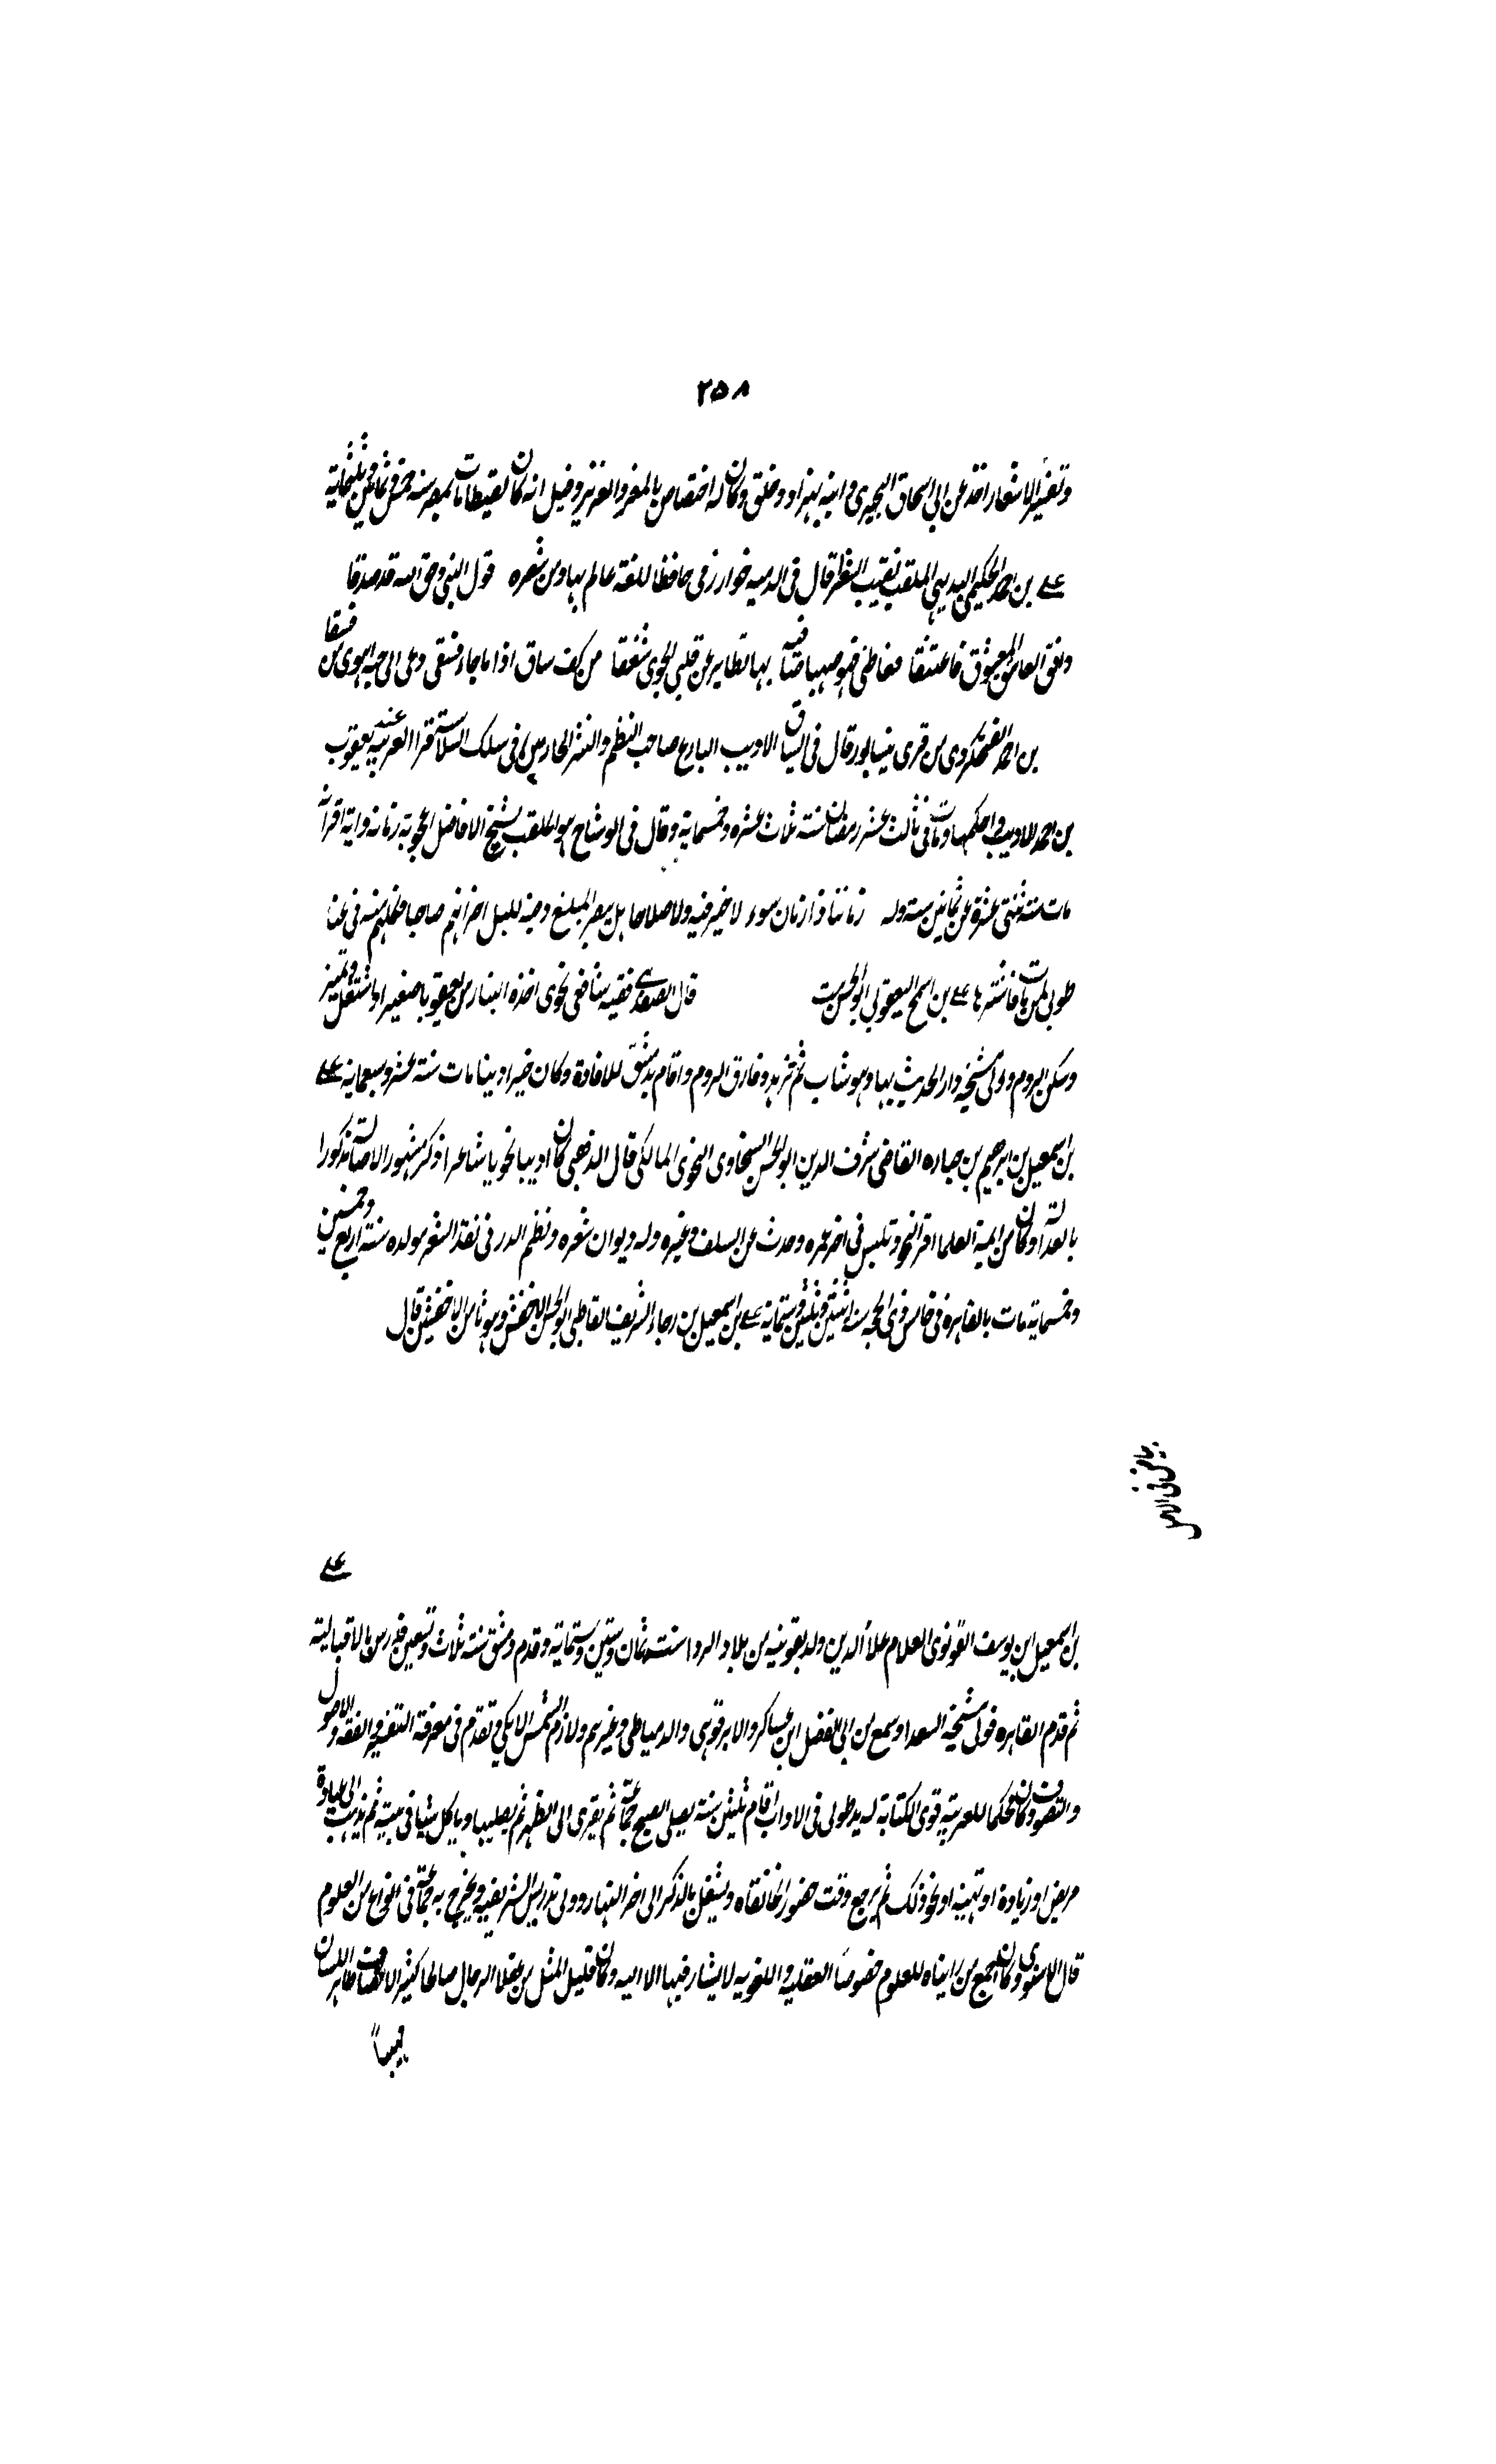 ٢٥٨
وتفسير الاشعار اخذ عن ابي اسحاق النجيرمي وابنه بهزاد وخلق وكان له اختصاص بالمعز والعزيز وقيل انه كان لقيطا مات بمصر سنة خمس وثمانين وثلثماية
علي بن احمد الحكيمي البديهي الملقب بنقيب الشعرا قال في الدمية خوارزمي حافظا للغة عالم بها ومن شعره قول النبي وحق الله قد صدقا
وافق العاشق المعشوق فاعتنقا فعاطني قهوة صهبا صافية بها تطاير عن قلبي الجوى شققا من كف ساق اذا ما جاء فسقى دعى الى حبه اهوى من فسقا
بن احمد الفنجكردي من قرى نيسابور قال في السياق الاديب البارع صاحب النظم والنثر الجاريين في سلك السلاسة قرا العربية عند يعقوب
بن احمد الاديب واحكمها ومات في ثالث عشر رمضان سنة ثلاث عشرة وخمسماية وقال في الوشاح هو الملقب بشيخ الافاضل اعجوبة زمانه واية اقرانه
مات سنة ثنتي عشرة عن ثمانين سنة وله زماننا ذا زمان سوء لا خير فيه ولا صلاحا هل يبصر المبلسون فيه لليل احزانهم صباحا فكلهم منه في عنا
طوبى لمن مات فاستراحا علي بن اسمح اليعقوبي ابو الحسن قال الصفدي فقيه شافعي نحوي اخذه التتار من يعقوبا صغيرا واشتغل وتميز
وسكن الروم وولي مشيخة دار الحديث بها وهو شاب ثم تزهد وفارق الروم واقام بدمشق للافادة وكان خيرا دينا مات سنة عشر وسبعماية علي
بن اسمعيل بن ابرهيم بن جباره القاضي شرف الدين ابو الحسن السخاوي النحوي المالكي قال الذهبي كان اديبا نحويا شاعرا ذكر مشهور الاصالة مذكورا
بالعدالة وكان من ايمة العلما اقرا النحو وتلبس في اخر عمره وحدث عن السلفي وغيره وله ديوان شعره ونظم الدر في نقد الشعر مولده سنة اربع وخمسين
وخمسماية مات بالقاهرة في خامس ذي الحجة سنة اثنتين وثلثين وستماية علي بن اسمعيل بن رجاء الشريف الفاطمي ابو الحسن الاخفش وهو ثامن الاخفشين قال
بياض في الاصل
علي
بن اسمعيل ابن يوسف القونوي العلام علاء الدين ولد بقونيه من بلاد الروم سنة ثمان وستين وستماية وقدم دمشق سنة ثلاث وتسعين فدرس بالاقبالية
ثم قدم القاهره فولي مشيخة السعدا وسمع من ابي الفضل ابن عساكر والابرقوهي والدمياطي وغيرهم ولازم الشمس الايكي وتقدم في معرفة التفسير والفقه والاصول
والتصوف وكان محكما للعربية قوي الكتابة له يد طولى في الاداب اقام ثلثين سنة يصلي الصبح جماعة ثم يقري الى الظهر ثم يصليها وياكل شيئا في بيته ثم يذهب الى عيادة
مريض او زيادة او تهنيه او نحو ذلك ثم يرجع وقت حضور الخانقاه ويشغل بالذكر الى اخر النهار وولي تدريس الشريفيه ويخرج به جماعة في انواع من العلوم
قال الاسنوي وكان اجمع من راينا للعلوم خصوصا العقليه واللغويه لا يشار فيها الا اليه وكان قليل المثل من عقلا الرجال صالحا كثير الانصاف طاهر اللسان
مهيبا